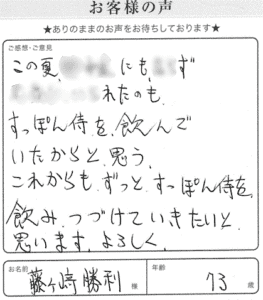 お客様の声
★ありのままのお声をお待ちしております★
ご感想・ご意見
この夏、 にも、 ず
れたのも、
すっぽん侍を、飲んで
いたからと、思う、
これからも、ずっと、すっぽん侍を、
飲み、つづけていきたいと、
思います、よろしく、
お名前 藤ヶ崎勝利 様 年齢 73 歳